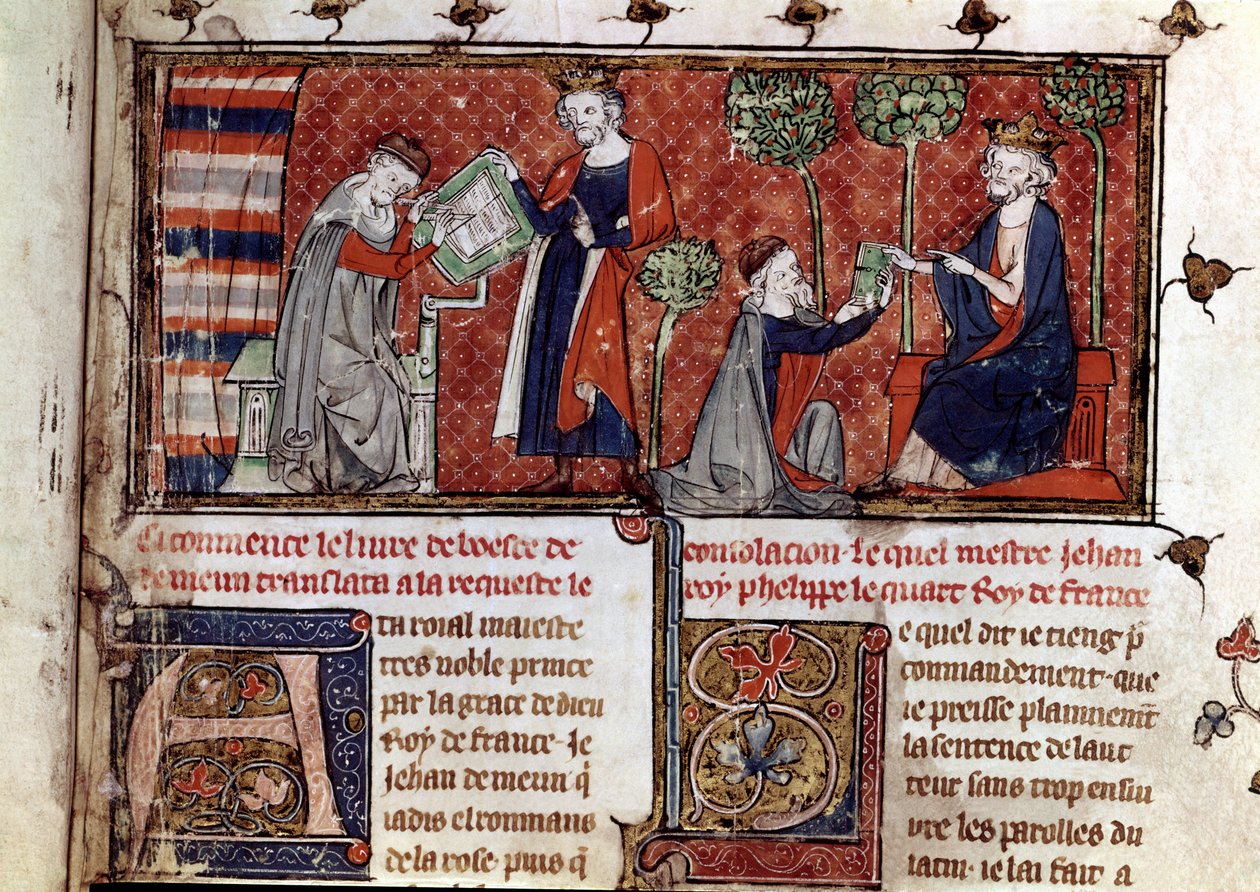 Ci commence le liure de boece de consolacion. le quel mestre Jehan
de meun translata a la requeste le roy phelippe le quart Roy de france
A ta roial maieste
tres noble prince
par la grace de dieu
Roy de france. Je
Jehan de meun. q̃
iadis el rommans
de la rose. puis q̃
L e quel dit ie tieng p̃
commandement. que
ie preisse plainnemẽt
la sentence de lauc
teur sans trop ensui
ure les parolles du
latin. ie lai fait a